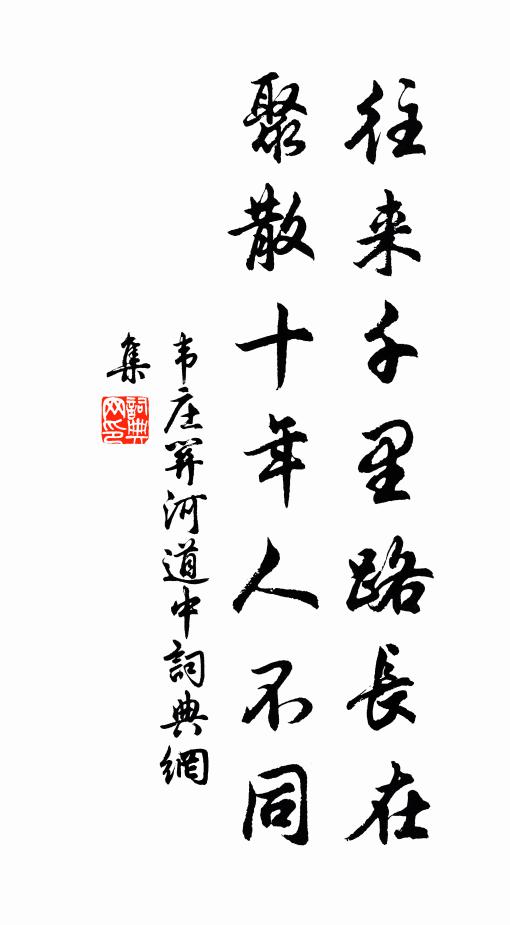 往来千里路長在
聚散十年人不同
韦庄関河道中詞典網
集
詞典
网印